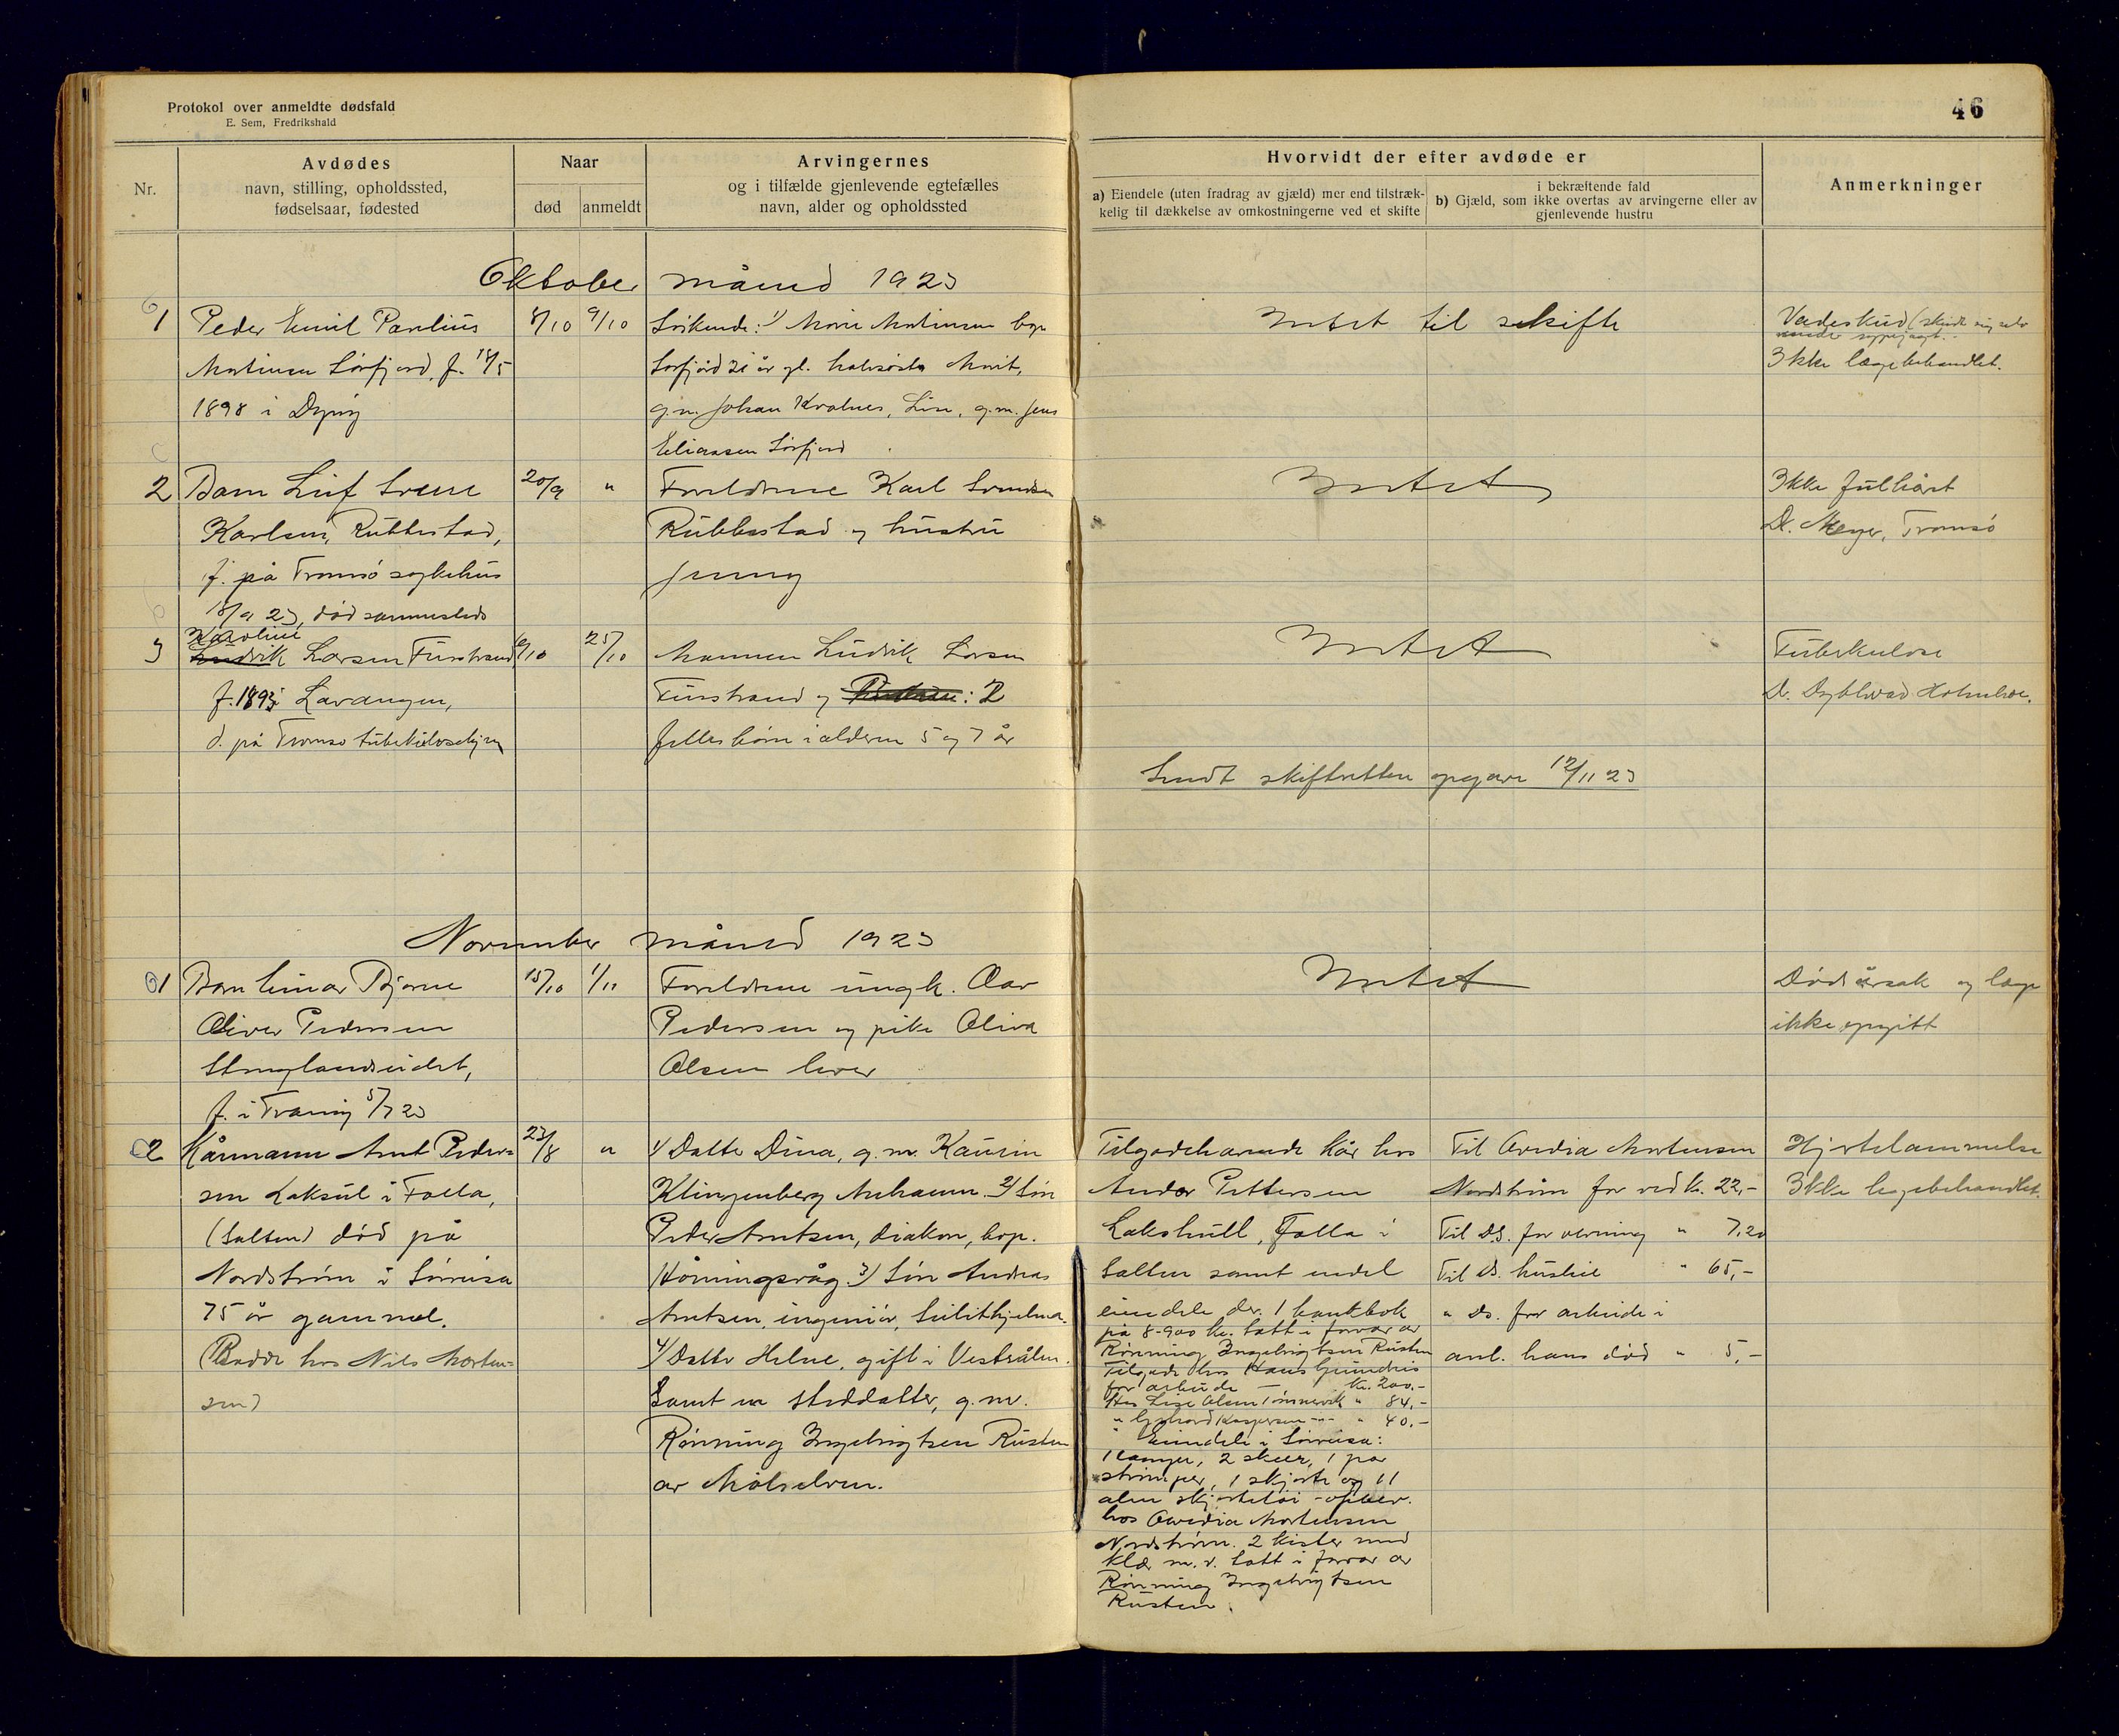 Protokol over anmeldte dødsfald
E. Sem, Fredrikshald
46
Nr.
Avdødes
navn, stilling, opholdssted,
fødselsaar, fødested
Naar
død
anmeldt
Arvingernes
og i tilfælde gjenlevende egtefælles
navn, alder og opholdssted
Hvorvidt der efter avdøde er
a) Eiendele (uten fradrag av gjæld) mer end tilstræk-
kelig til dækkelse av omkostningerne ved et skifte
i bekræftende fald
b) Gjæld, som ikke overtas av arvingerne eller av
gjenlevende hustru
Anmerkninger
Oktober måned 1923
1
Peder Emil Paulius
Martinsen Sørfjord, f. 18/5
1898 i Dyrøy
8/10
9/10
Søskende: 1/ Marie Martinsen bop
Sørfjord 21 år gl. halvsøstr Marit,
g.m. Johan Kvalnes, Lise, g.m. Jens
Eliassen Sørfjord
Intet til skifte
Vadeskud (skudt sig selv
under rypejagt.
Ikke lægebehandlet.
2
Barn Leif Svein
Karlsen, Rubbestad,
f. på Tromsø sykehus
18/9 23, død sammesteds
20/9
"
Foreldrene Karl Svendsen
Rubbestad og hustru
Jenny
Intet
Ikke fulbåret
Dr. Meyer, Tromsø
3
Karoline
Ludvik Larsen Finstrand
f. 1893 i Lavangen,
d. på Tromsø tuberkulosehjem
6/10
25/10
Mannen Ludvik Larsen
Finstrand og : 2
fellesbørn i alderen 5 og 7 år
Intet
Tuberkulose
Dr. Dybwad Holmboe.
Sendt skifteretten opgave 12/11 23
November måned 1923
1
Barn Einar Bjarne
Oliver Pedersen
Stonglandseidet,
f. i Tranøy 5/7 23
15/10
1/11
Foreldrene ungk. Oav
Pedersen og pike Oliva
Olsen lever
Intet
Dødsårsak og læge
ikke opgitt
2
Kårmann Arnt Peder-
sen Laksul i Folla,
(Salten) død på
Nordstrøm i Sørreisa
75 år gammel.
(Bodde hos Nils Morten-
sen)
23/8
"
1/ Datter Dina, g.m. Kaurin
Klingenberg Ankenes 2/ Søn
Peder Arntsen, diakon, bop.
Honningsvåg 3/ Søn Andreas
Arntsen, ingeniør, Sulithjelma.
4/ Datter Helene, gift i Vesterålen.
Samt en steddatter, g.m.
Rønning Ingebrigtsen Rusten
av Målselven.
Tilgodehavende kår hos
Andor Pettersen
Lakshull, Folla i
Salten samt endel
eiendele der. 1 bankbok
på 8-900 kr. tatt i forvar av
Rønning Ingebrigtsen Rusten
Tilgode hos Hans
for arbeide — kr. 200.-
Hos Lise Olsen Tømmervik " 84,-
" Gerhard Kaspersen --- " 40.-
Eiendele i Sørreisa:
1 , 2 skeer, 1 par
strømper, 1 skjorte og 11
alen skjortetøi - opbev.
hos Ovedia Mortensen
Nordstrøm. 2 kister med
klær m.v. tatt i forvar av
Rønning Ingebrigtsen
Rusten.
Til Ovedia Mortensen
Nordstrøm for ved kr. 22,-
Til ds. for " 7,20
Til ds. husleie " 65,-
" ds. for arbeide i
anl. hans død " 5,-
Hjertelammelse
Ikke legebehandlet.